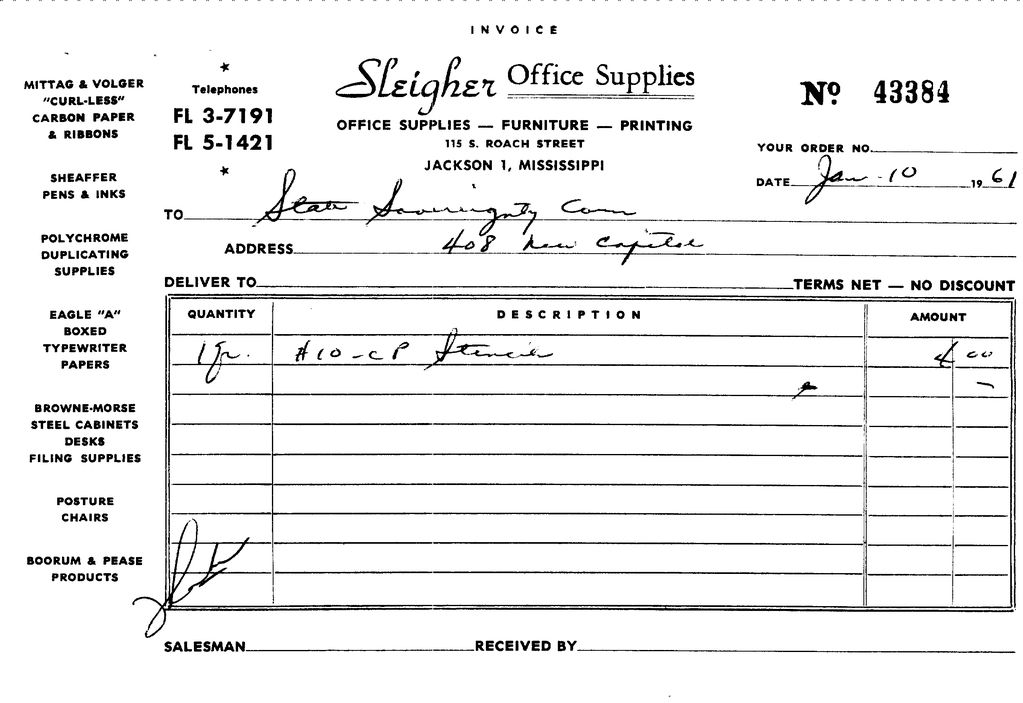 INVOICE
MITTAG & VOLGER
"CURL-LESS"
CARBON PAPER
& RIBBONS
SHEAFFER
PENS & INKS
POLYCHROME
DUPLICATING
SUPPLIES
EAGLE "A"
BOXED
TYPEWRITER
PAPERS
BROWNE-MORSE
STEEL CABINETS
DESKS
FILING SUPPLIES
POSTURE
CHAIRS
BOORUM & PEASE
PRODUCTS
Telephones
FL 3-7191
FL 5-1421
Sleigher Office Supplies
OFFICE SUPPLIES — FURNITURE — PRINTING
115 S. ROACH STREET
JACKSON 1, MISSISSIPPI
Nº 43384
YOUR ORDER NO.
DATE Jan - 10 19 61
TO State Sovereignty Com
ADDRESS 408 New Capitol
DELIVER TO TERMS NET — NO DISCOUNT
QUANTITY DESCRIPTION AMOUNT
1 #10-CP Stencils 4 00
SALESMAN RECEIVED BY